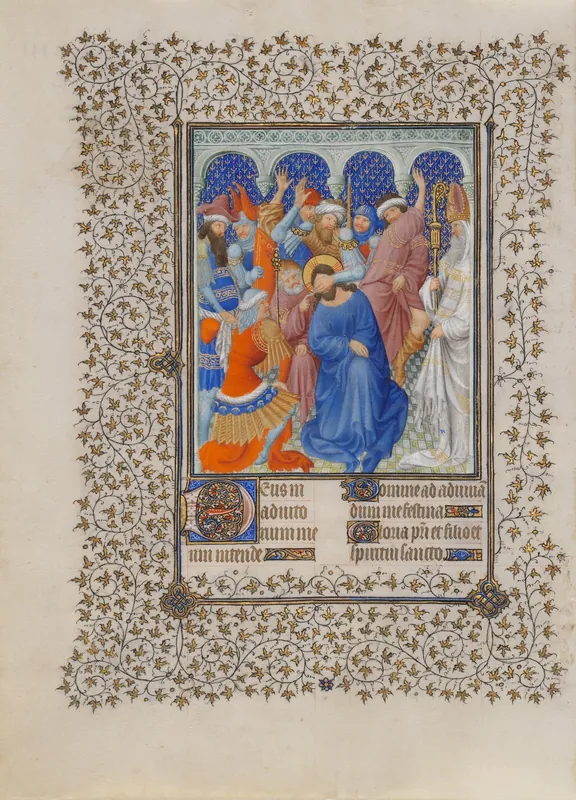 Deus in
adiuto
rium me
um intende
Domine ad adiuuā
dum me festina
Gloria pr̄i et filio et
spiritui sancto